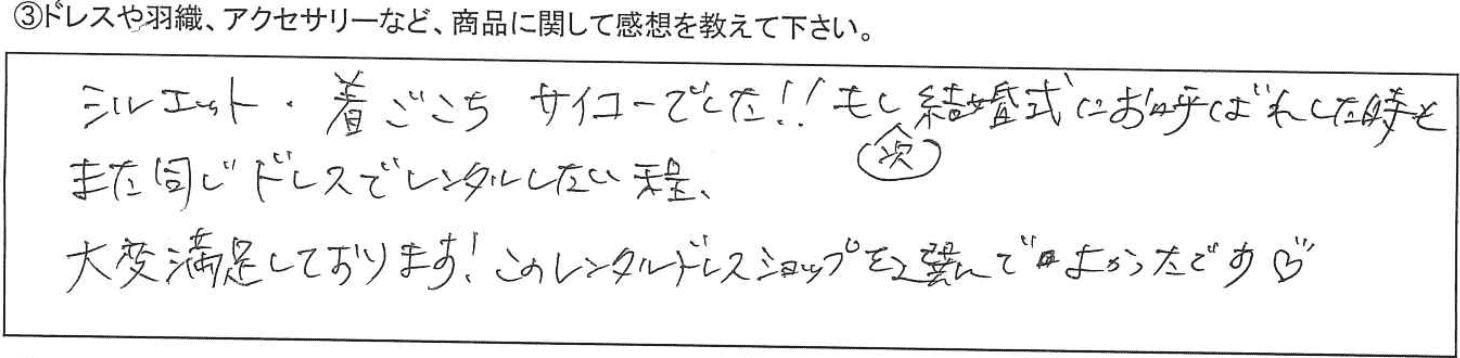 ③ドレスや羽織、アクセサリーなど、商品に関して感想を教えて下さい。
シルエット・着ごこち サイコーでした!!もし次結婚式にお呼ばれした時も
また同じドレスでレンタルしたい程、
大変満足しております!このレンタルドレスショップを選んでよかったです♡